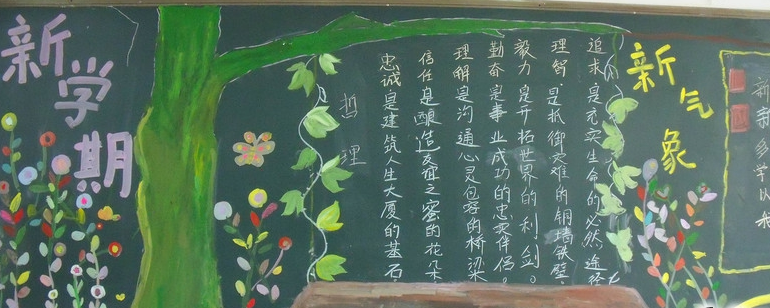 新学期
哲理
追求是充实生命的必然途径
理智是抵御灾难的铜墙铁壁。
毅力是开拓世界的利剑。
勤奋是事业成功的忠实伴侣。
理解是沟通心灵包容的桥梁
信任是酿造友谊之蜜的花朵
忠诚是建筑人生大厦的基石。
新气象